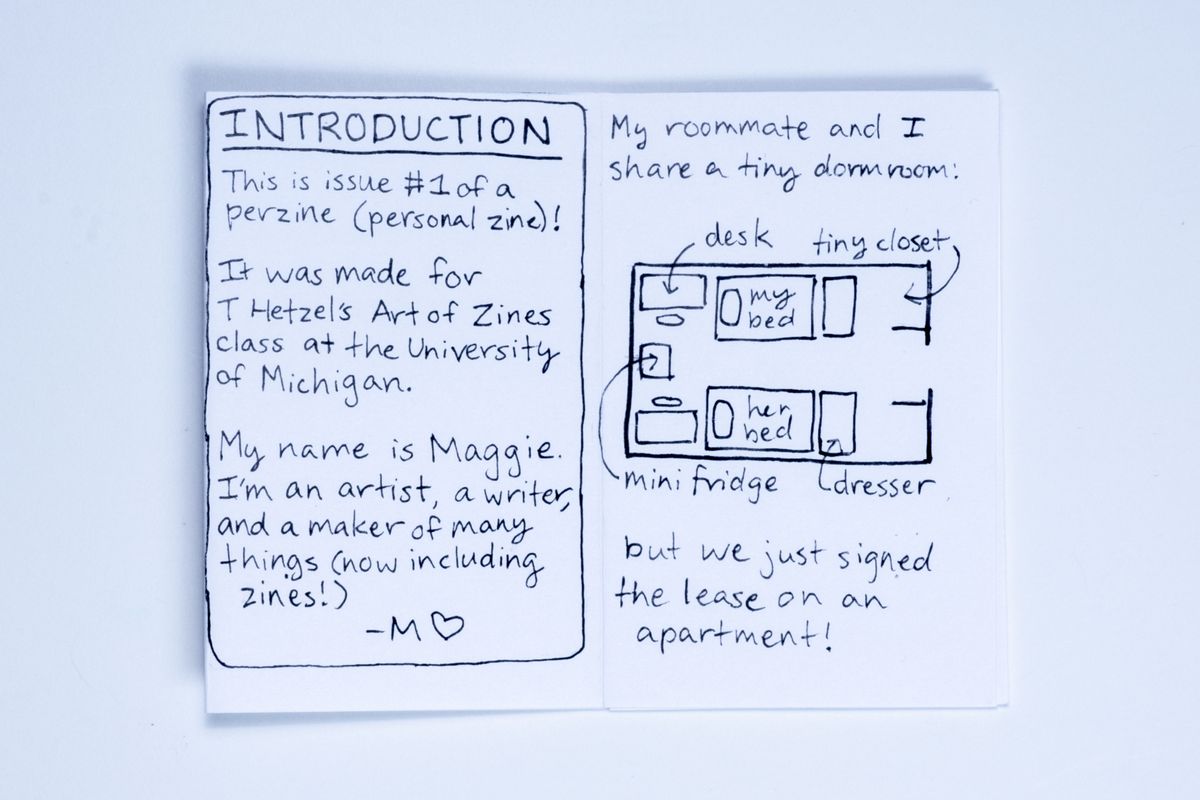 INTRODUCTION
This is issue #1 of a
perzine (personal zine)!
It was made for
T Hetzel's Art of Zines
class at the University
of Michigan.
My name is Maggie.
I'm an artist, a writer,
and a maker of many
things (now including
zines!)
-M♡
My roommate and I
share a tiny dormroom:
desk
tiny closet
my
bed
her
bed
mini fridge
dresser
but we just signed
the lease on an
apartment!